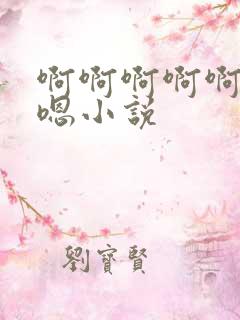 啊啊啊啊啊
嗯小说
劉寶賢